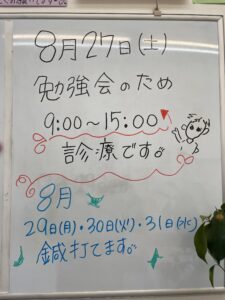 8月27日(土)
勉強会のため
9:00～15:00
診療です。
8月
29日(月)・30日(火)・31日(水)
鍼打てます。